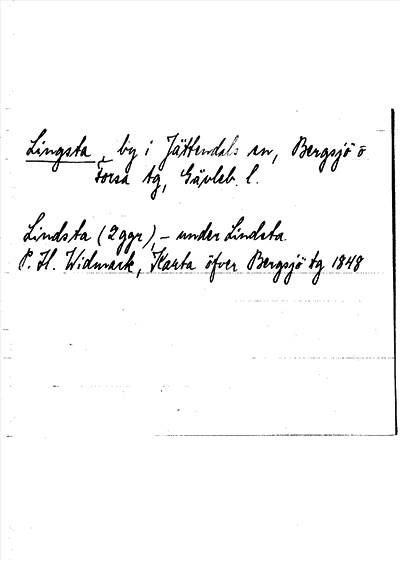 Lingsta, by i Jättendals sn, Bergsjö o
Forsa tg, Gävleb. l.
Lindsta (2 ggr), - under Lindsta
P. H. Widmark, Karta öfver Bergsjö tg 1848